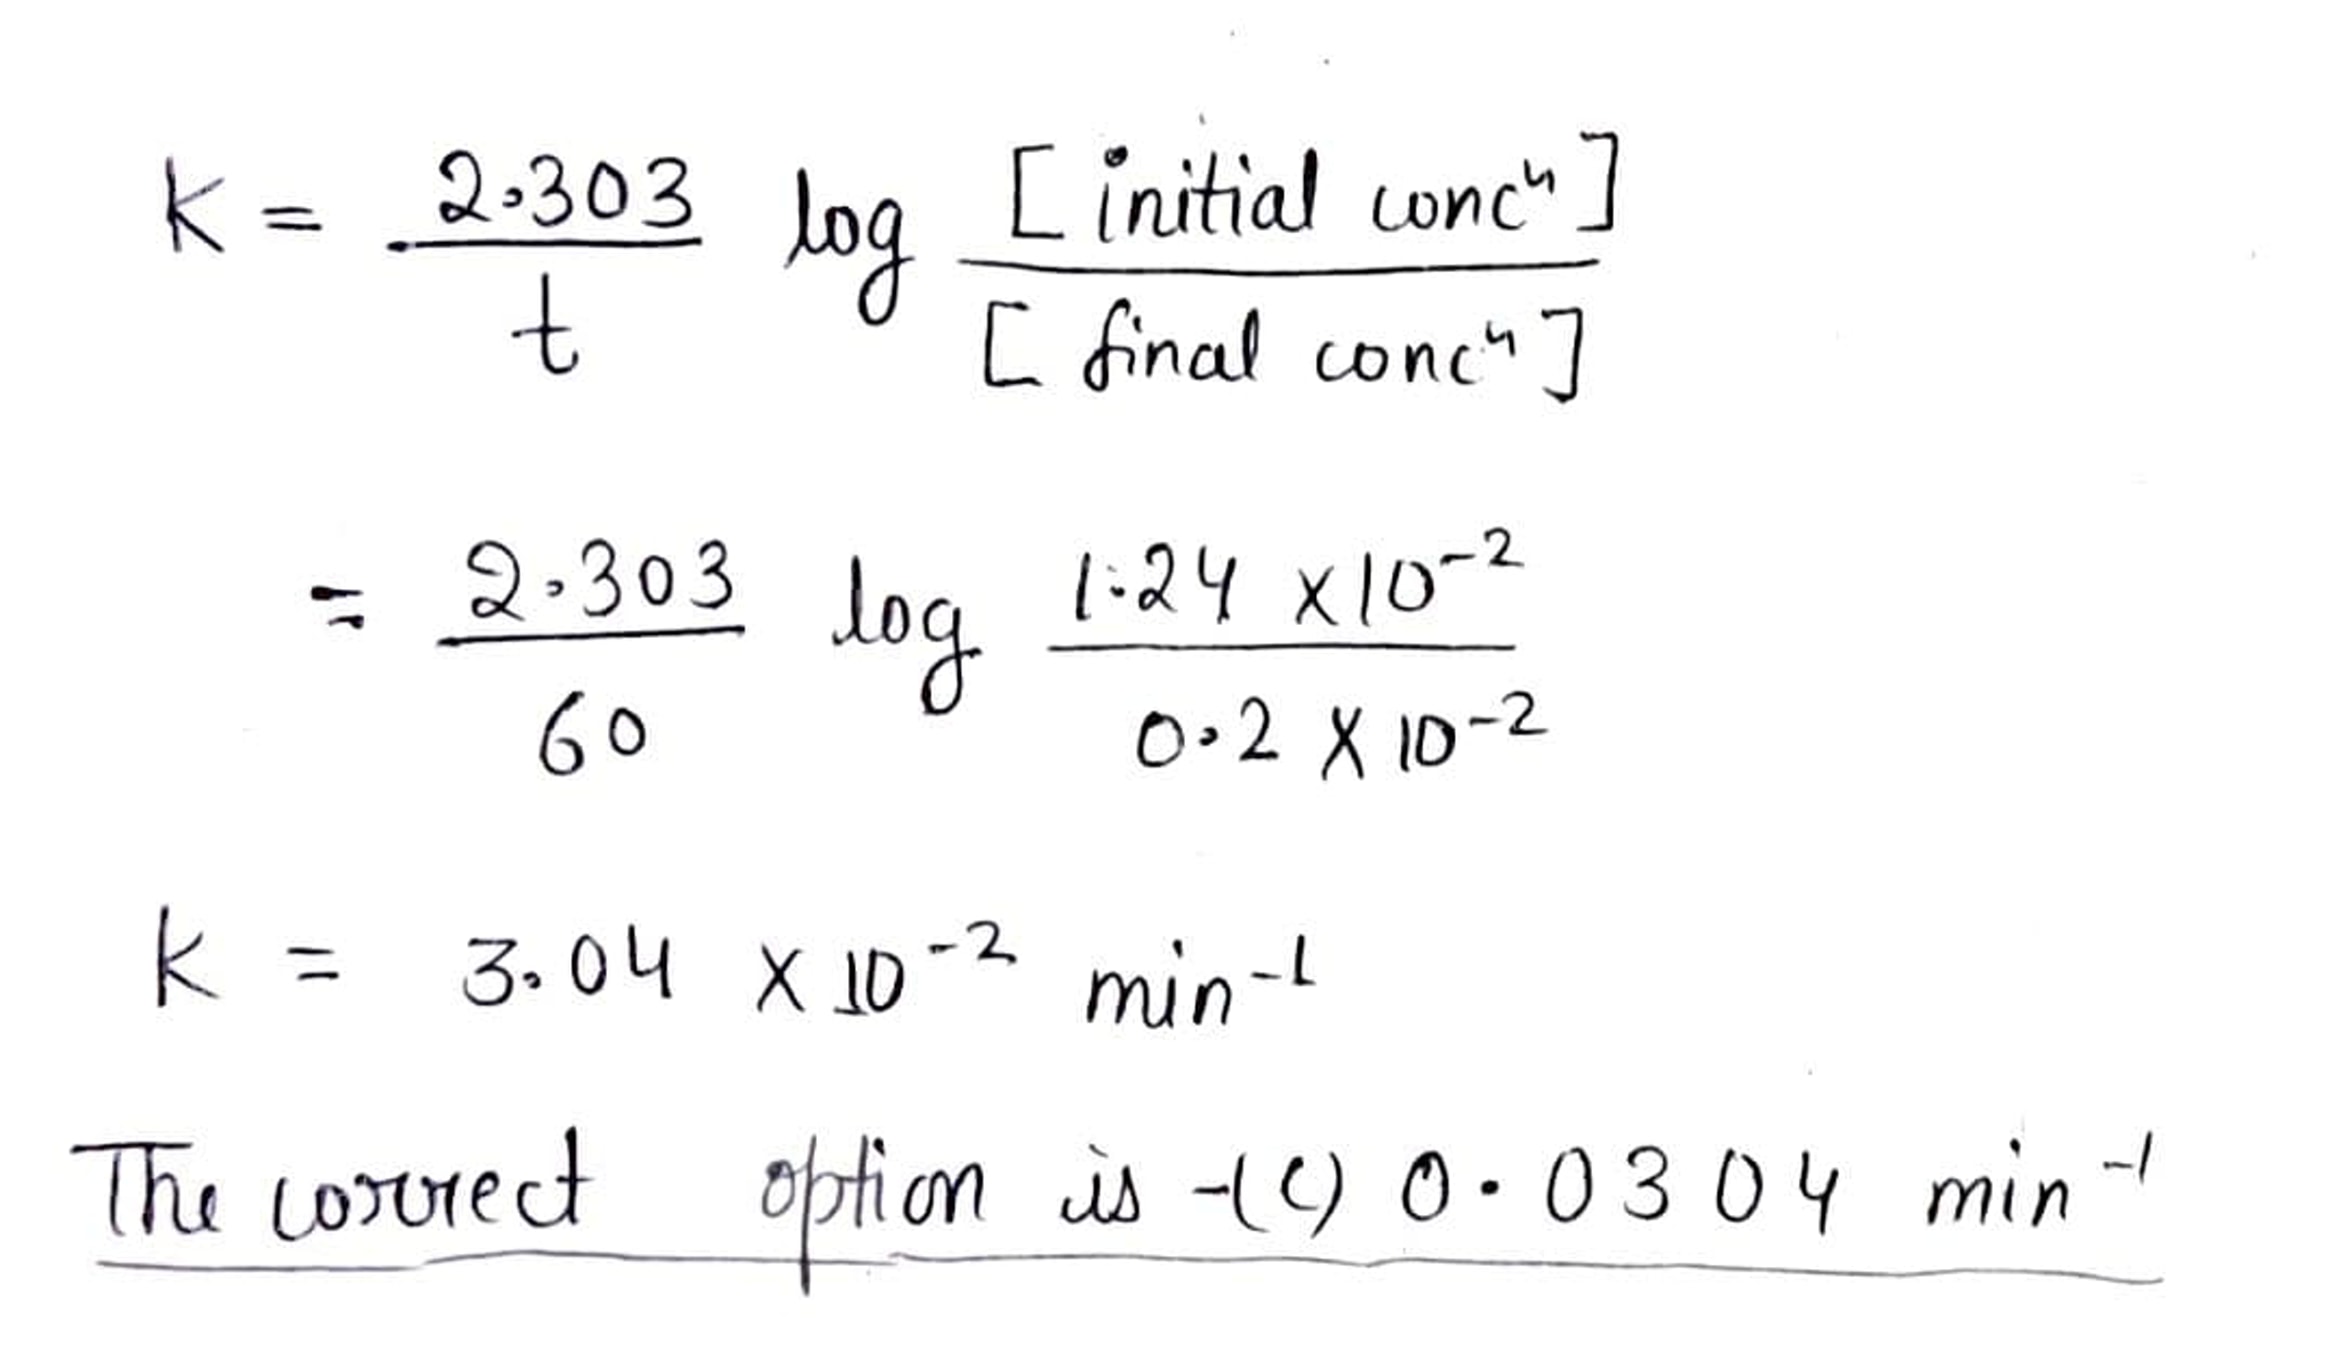 K = 2.303 / t log [initial concⁿ] / [final concⁿ]
= 2.303 / 60 log 1.24 × 10⁻² / 0.2 × 10⁻²
K = 3.04 × 10⁻² min⁻¹
The correct option is -(C) 0.0304 min⁻¹